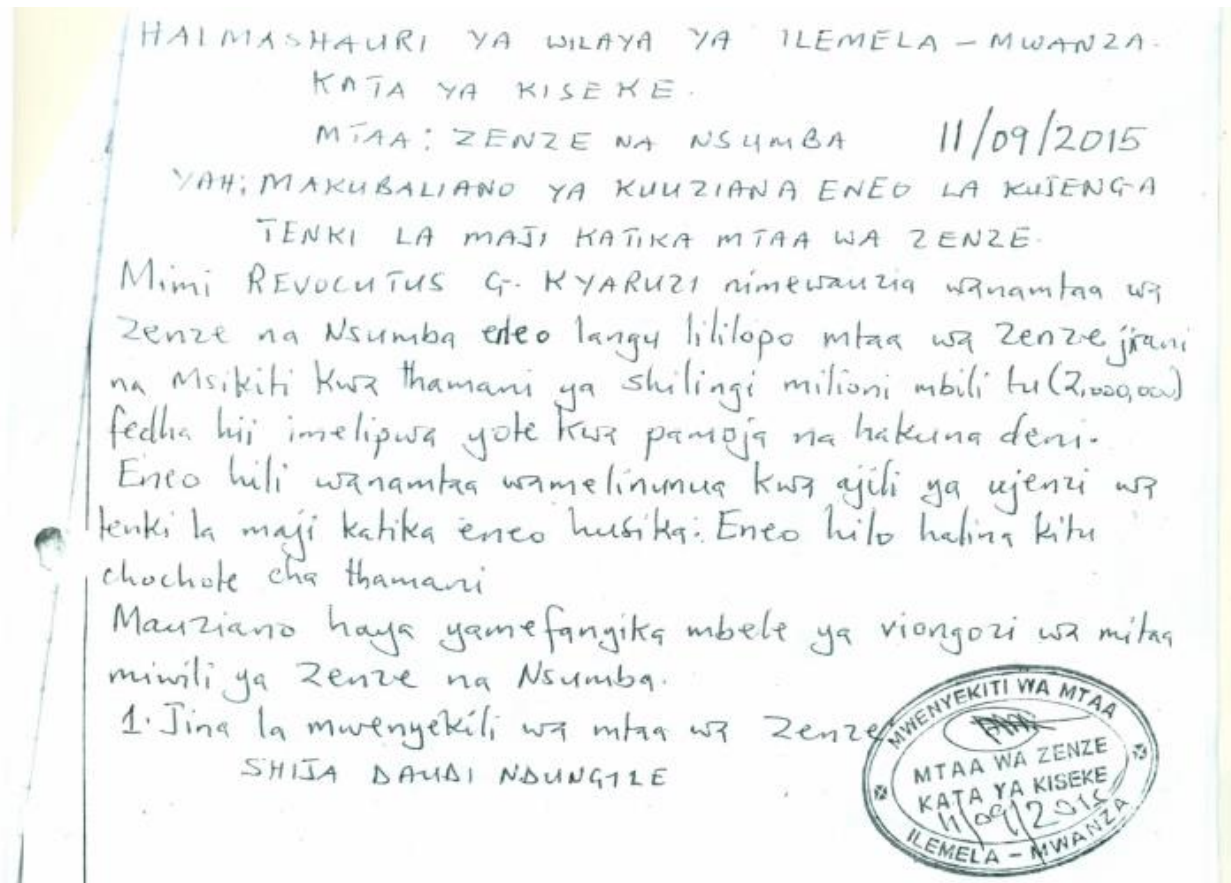 HALMASHAURI YA WILAYA YA ILEMELA – MWANZA.
KATA YA KISEKE.
MTAA: ZENZE NA NSUMBA 11/09/2015
YAH: MAKUBALIANO YA KUUZIANA ENEO LA KUJENGA
TENKI LA MAJI KATIKA MTAA WA ZENZE.
Mimi REVOCUTUS G. KYARUZI nimewauzia wanamtaa wa
Zenze na Nsumba eneo langu lililopo mtaa wa Zenze jirani
na Msikiti Kwa thamani ya shilingi milioni mbili tu (2,000,000)
fedha hii imelipwa yote Kwa pamoja na hakuna deni.
Eneo hili wanamtaa wamelinunua Kwa ajili ya ujenzi wa
tenki la maji katika eneo husika. Eneo hilo halina kitu
chochote cha thamani
Mauziano haya yamefanyika mbele ya viongozi wa mitaa
miwili ya Zenze na Nsumba.
1. Jina la mwenyekiti wa mtaa wa Zenze
SHIJA DAUDI NDUNGILE
MWENYEKITI WA MTAA
MTAA WA ZENZE
KATA YA KISEKE
11/09/2015
ILEMELA – MWANZA